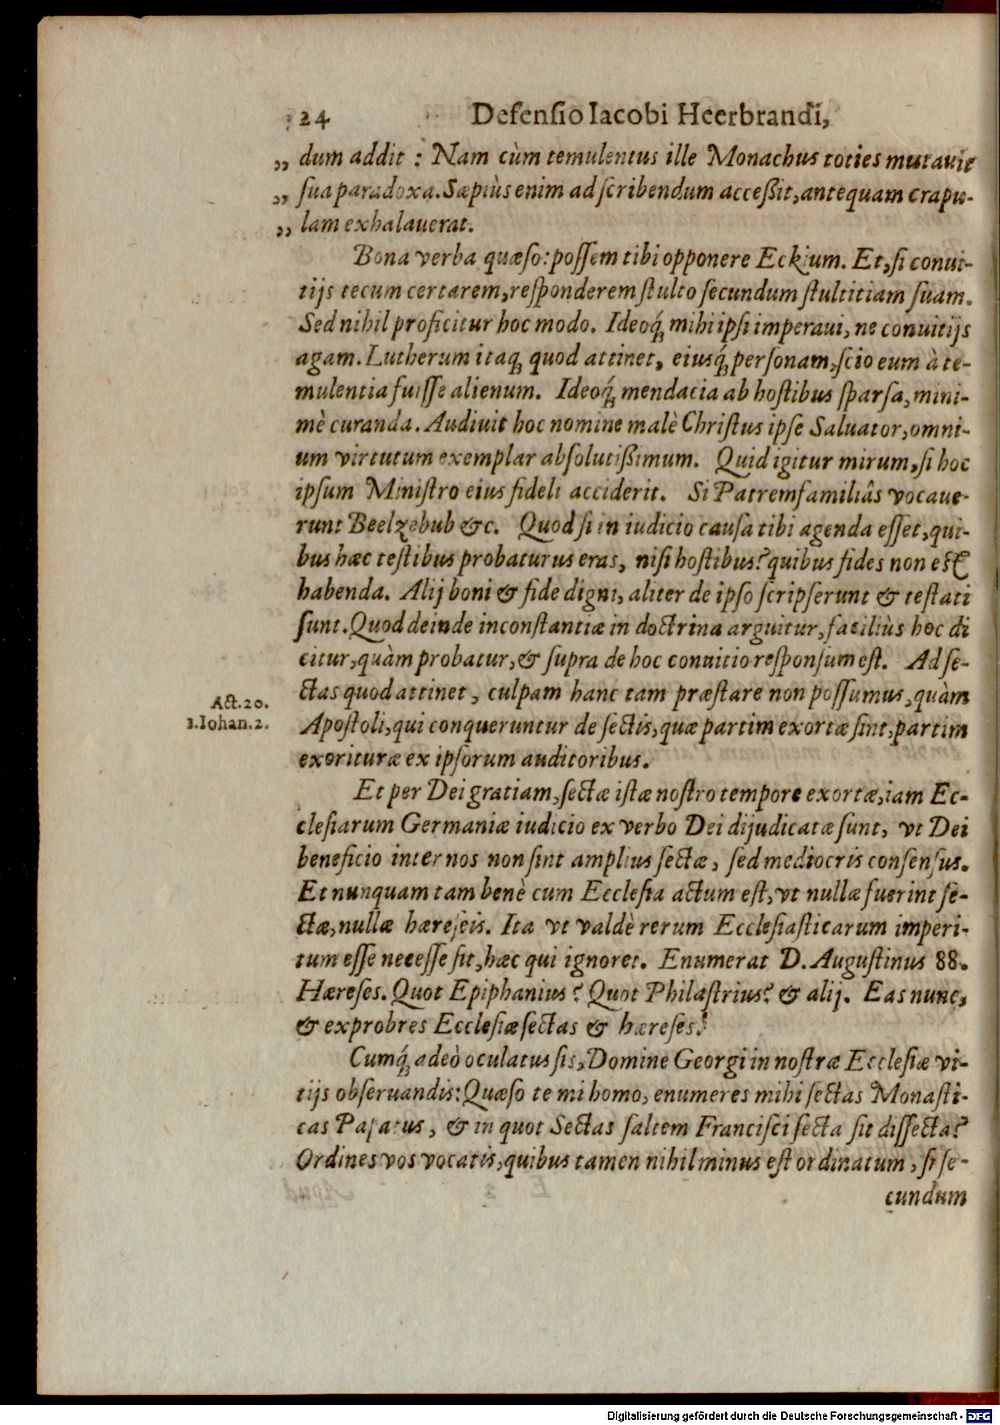 24 Defenſio Iacobi Heerbrandi,
„ dum addit : Nam cùm temulentus ille Monachus toties mutauit
„ ſua paradoxa. Sæpiùs enim ad ſcribendum acceßit, antequam crapu-
„ lam exhalauerat.
Bona verba quæſo: poſſem tibi opponere Eckium. Et, ſi conui-
tijs tecum certarem, reſponderem ſtulto ſecundum ſtultitiam ſuam.
Sed nihil proficitur hoc modo. Ideoq́; mihi ipſi imperaui, ne conuitijs
agam. Lutherum itaq; quod attinet, eiusq́; perſonam, ſcio eum à te-
mulentia fuiſſe alienum. Ideoq́; mendacia ab hoſtibus ſparſa, mini-
mè curanda. Audiuit hoc nomine malè Chriſtus ipſe Saluator, omni-
um virtutum exemplar abſolutißimum. Quid igitur mirum, ſi hoc
ipſum Miniſtro eius fideli acciderit. Si Patremfamiliâs vocaue-
runt Beelzebub &c. Quod ſi in iudicio cauſa tibi agenda eſſet, qui-
bus hæc teſtibus probaturus eras, niſi hoſtibus? quibus fides non eſt
habenda. Alij boni & fide digni, aliter de ipſo ſcripſerunt & teſtati
ſunt. Quod deinde inconſtantiæ in doctrina arguitur, faciliùs hoc di
citur, quàm probatur, & ſupra de hoc conuitio reſponſum eſt. Ad ſe-
ctas quod attinet, culpam hanc tam præſtare non poſſumus, quàm
Act. 20.
1. Iohan. 2.
Apoſtoli, qui conqueruntur de ſectis, quæ partim exortæ ſint, partim
exorituræ ex ipſorum auditoribus.
Et per Dei gratiam, ſectæ iſtæ noſtro tempore exortæ, iam Ec-
cleſiarum Germaniæ iudicio ex verbo Dei dijudicatæ ſunt, vt Dei
beneficio inter nos non ſint amplius ſectæ, ſed mediocris conſenſus.
Et nunquam tam benè cum Eccleſia actum eſt, vt nullæ fuerint ſe-
ctæ, nullæ hæreſeis. Ita vt valdè rerum Eccleſiaſticarum imperi-
tum eſſe neceſſe ſit, hæc qui ignoret. Enumerat D. Auguſtinus 88.
Hæreſes. Quot Epiphanius? Quot Philaſtrius? & alij. Eas nunc,
& exprobres Eccleſiæ ſectas & hæreſes!
Cumq́; adeò oculatus ſis, Domine Georgi in noſtræ Eccleſiæ vi-
tijs obſeruandis: Quæſo te mi homo, enumeres mihi ſectas Monaſti-
cas Papatus, & in quot Sectas ſaltem Franciſci ſecta ſit diſſecta?
Ordines vos vocatis, quibus tamen nihil minus eſt ordinatum, ſi ſe-
cundum
Digitalisierung gefördert durch die Deutsche Forschungsgemeinschaft - DFG